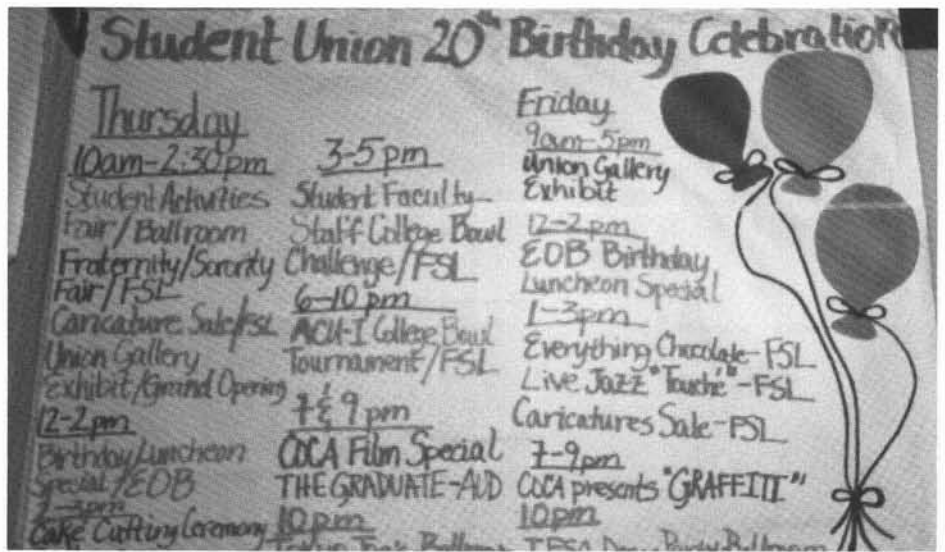 Student Union 20th Birthday Celebration
Thursday
10am-2:30pm
Student Activities
Fair/Ballroom
Fraternity/Sorority
Fair/FSL
Caricature Sale/FSL
Union Gallery
Exhibit/Grand Opening
12-2pm
Birthday Luncheon
Special/EOB
2-3pm
Cake Cutting Ceremony
3-5pm
Student Faculty
Staff College Bowl
Challenge/FSL
6-10pm
ACU-I College Bowl
Tournament/FSL
7 & 9pm
COCA Film Special
THE GRADUATE-AUD
10pm
Friday
9am-5pm
Union Gallery
Exhibit
12-2pm
EOB Birthday
Luncheon Special
1-3pm
Everything Chocolate-FSL
Live Jazz "Touché"-FSL
Caricatures Sale-FSL
7-9pm
COCA presents "GRAFFITI"
10pm